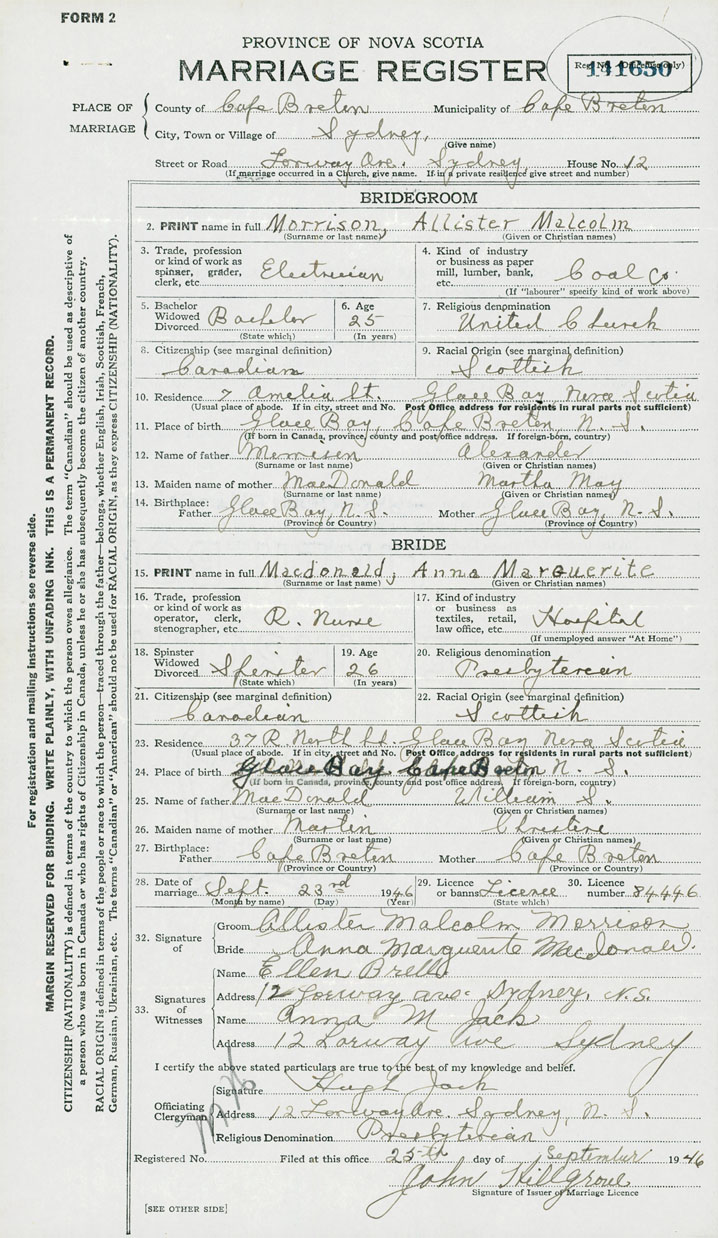 FORM 2
PROVINCE OF NOVA SCOTIA
MARRIAGE REGISTER
Reg. No. (Office use only)
141650
PLACE OF MARRIAGE
County of Cape Breton Municipality of Cape Breton
City, Town or Village of Sydney,
(Give name)
Street or Road Lorway Ave. Sydney House No. 12
(If marriage occurred in a Church, give name. If in a private residence give street and number)
BRIDEGROOM
2. PRINT name in full Morrison, Allister Malcolm
(Surname or last name) (Given or Christian names)
3. Trade, profession or kind of work as spinner, grader, clerk, etc. Electrician
4. Kind of industry or business as paper mill, lumber, bank, etc. Coal Co.
(If "labourer" specify kind of work above)
5. Bachelor Widowed Divorced Bachelor
(State which)
6. Age 25
(In years)
7. Religious denomination
United Church
8. Citizenship (see marginal definition)
Canadian
9. Racial Origin (see marginal definition)
Scottish
10. Residence 7 Amelia St. Glace Bay Nova Scotia
(Usual place of abode. If in city, street and No. Post Office address for residents in rural parts not sufficient)
11. Place of birth Glace Bay, Cape Breton, N. S.
(If born in Canada, province, county and post office address. If foreign-born, country)
12. Name of father Morrison Alexander
(Surname or last name) (Given or Christian names)
13. Maiden name of mother MacDonald Martha May
(Surname or last name) (Given or Christian names)
14. Birthplace: Father Glace Bay, N. S. Mother Glace Bay, N. S.
(Province or Country) (Province or Country)
BRIDE
15. PRINT name in full Macdonald, Anna Marguerite
(Surname or last name) (Given or Christian names)
16. Trade, profession or kind of work as operator, clerk, stenographer, etc. R. Nurse
17. Kind of industry or business as textiles, retail, law office, etc. Hospital
(If unemployed answer "At Home")
18. Spinster Widowed Divorced Spinster
(State which)
19. Age 26
(In years)
20. Religious denomination
Presbyterian
21. Citizenship (see marginal definition)
Canadian
22. Racial Origin (see marginal definition)
Scottish
23. Residence 37 R. North St. Glace Bay Nova Scotia
(Usual place of abode. If in city, street and No. Post Office address for residents in rural parts not sufficient)
24. Place of birth Glace Bay Cape Breton N. S.
(If born in Canada, province, county and post office address. If foreign-born, country)
25. Name of father MacDonald William S.
(Surname or last name) (Given or Christian names)
26. Maiden name of mother Martin Christine
(Surname or last name) (Given or Christian names)
27. Birthplace: Father Cape Breton Mother Cape Breton
(Province or Country) (Province or Country)
28. Date of marriage Sept. 23rd 1946
(Month by name) (Day) (Year)
29. Licence or banns Licence
(State which)
30. Licence number 84446
32. Signature of
Groom Allister Malcolm Morrison
Bride Anna Marguerite Macdonald.
33. Signatures of Witnesses
Name Ellen
Address 12 Lorway ave. Sydney, N.S.
Name Anna M Jack
Address 12 Lorway ave Sydney
I certify the above stated particulars are true to the best of my knowledge and belief.
Officiating Clergyman
Signature Hugh Jack
Address 12 Lorway Ave. Sydney, N. S.
Religious Denomination Presbyterian
Registered No. Filed at this office 25th day of September 1946
John Hillgrove
Signature of Issuer of Marriage Licence
[SEE OTHER SIDE]
For registration and mailing instructions see reverse side.
MARGIN RESERVED FOR BINDING. WRITE PLAINLY, WITH UNFADING INK. THIS IS A PERMANENT RECORD.
CITIZENSHIP (NATIONALITY) is defined in terms of the country to which the person owes allegiance. The term "Canadian" should be used as descriptive of
a person who was born in Canada or who has rights of Citizenship in Canada, unless he or she has subsequently become the citizen of another country.
RACIAL ORIGIN is defined in terms of the people or race to which the person—traced through the father—belongs, whether English, Irish, Scottish, French,
German, Russian, Ukrainian, etc. The terms "Canadian" or "American" should not be used for RACIAL ORIGIN, as they express CITIZENSHIP (NATIONALITY).